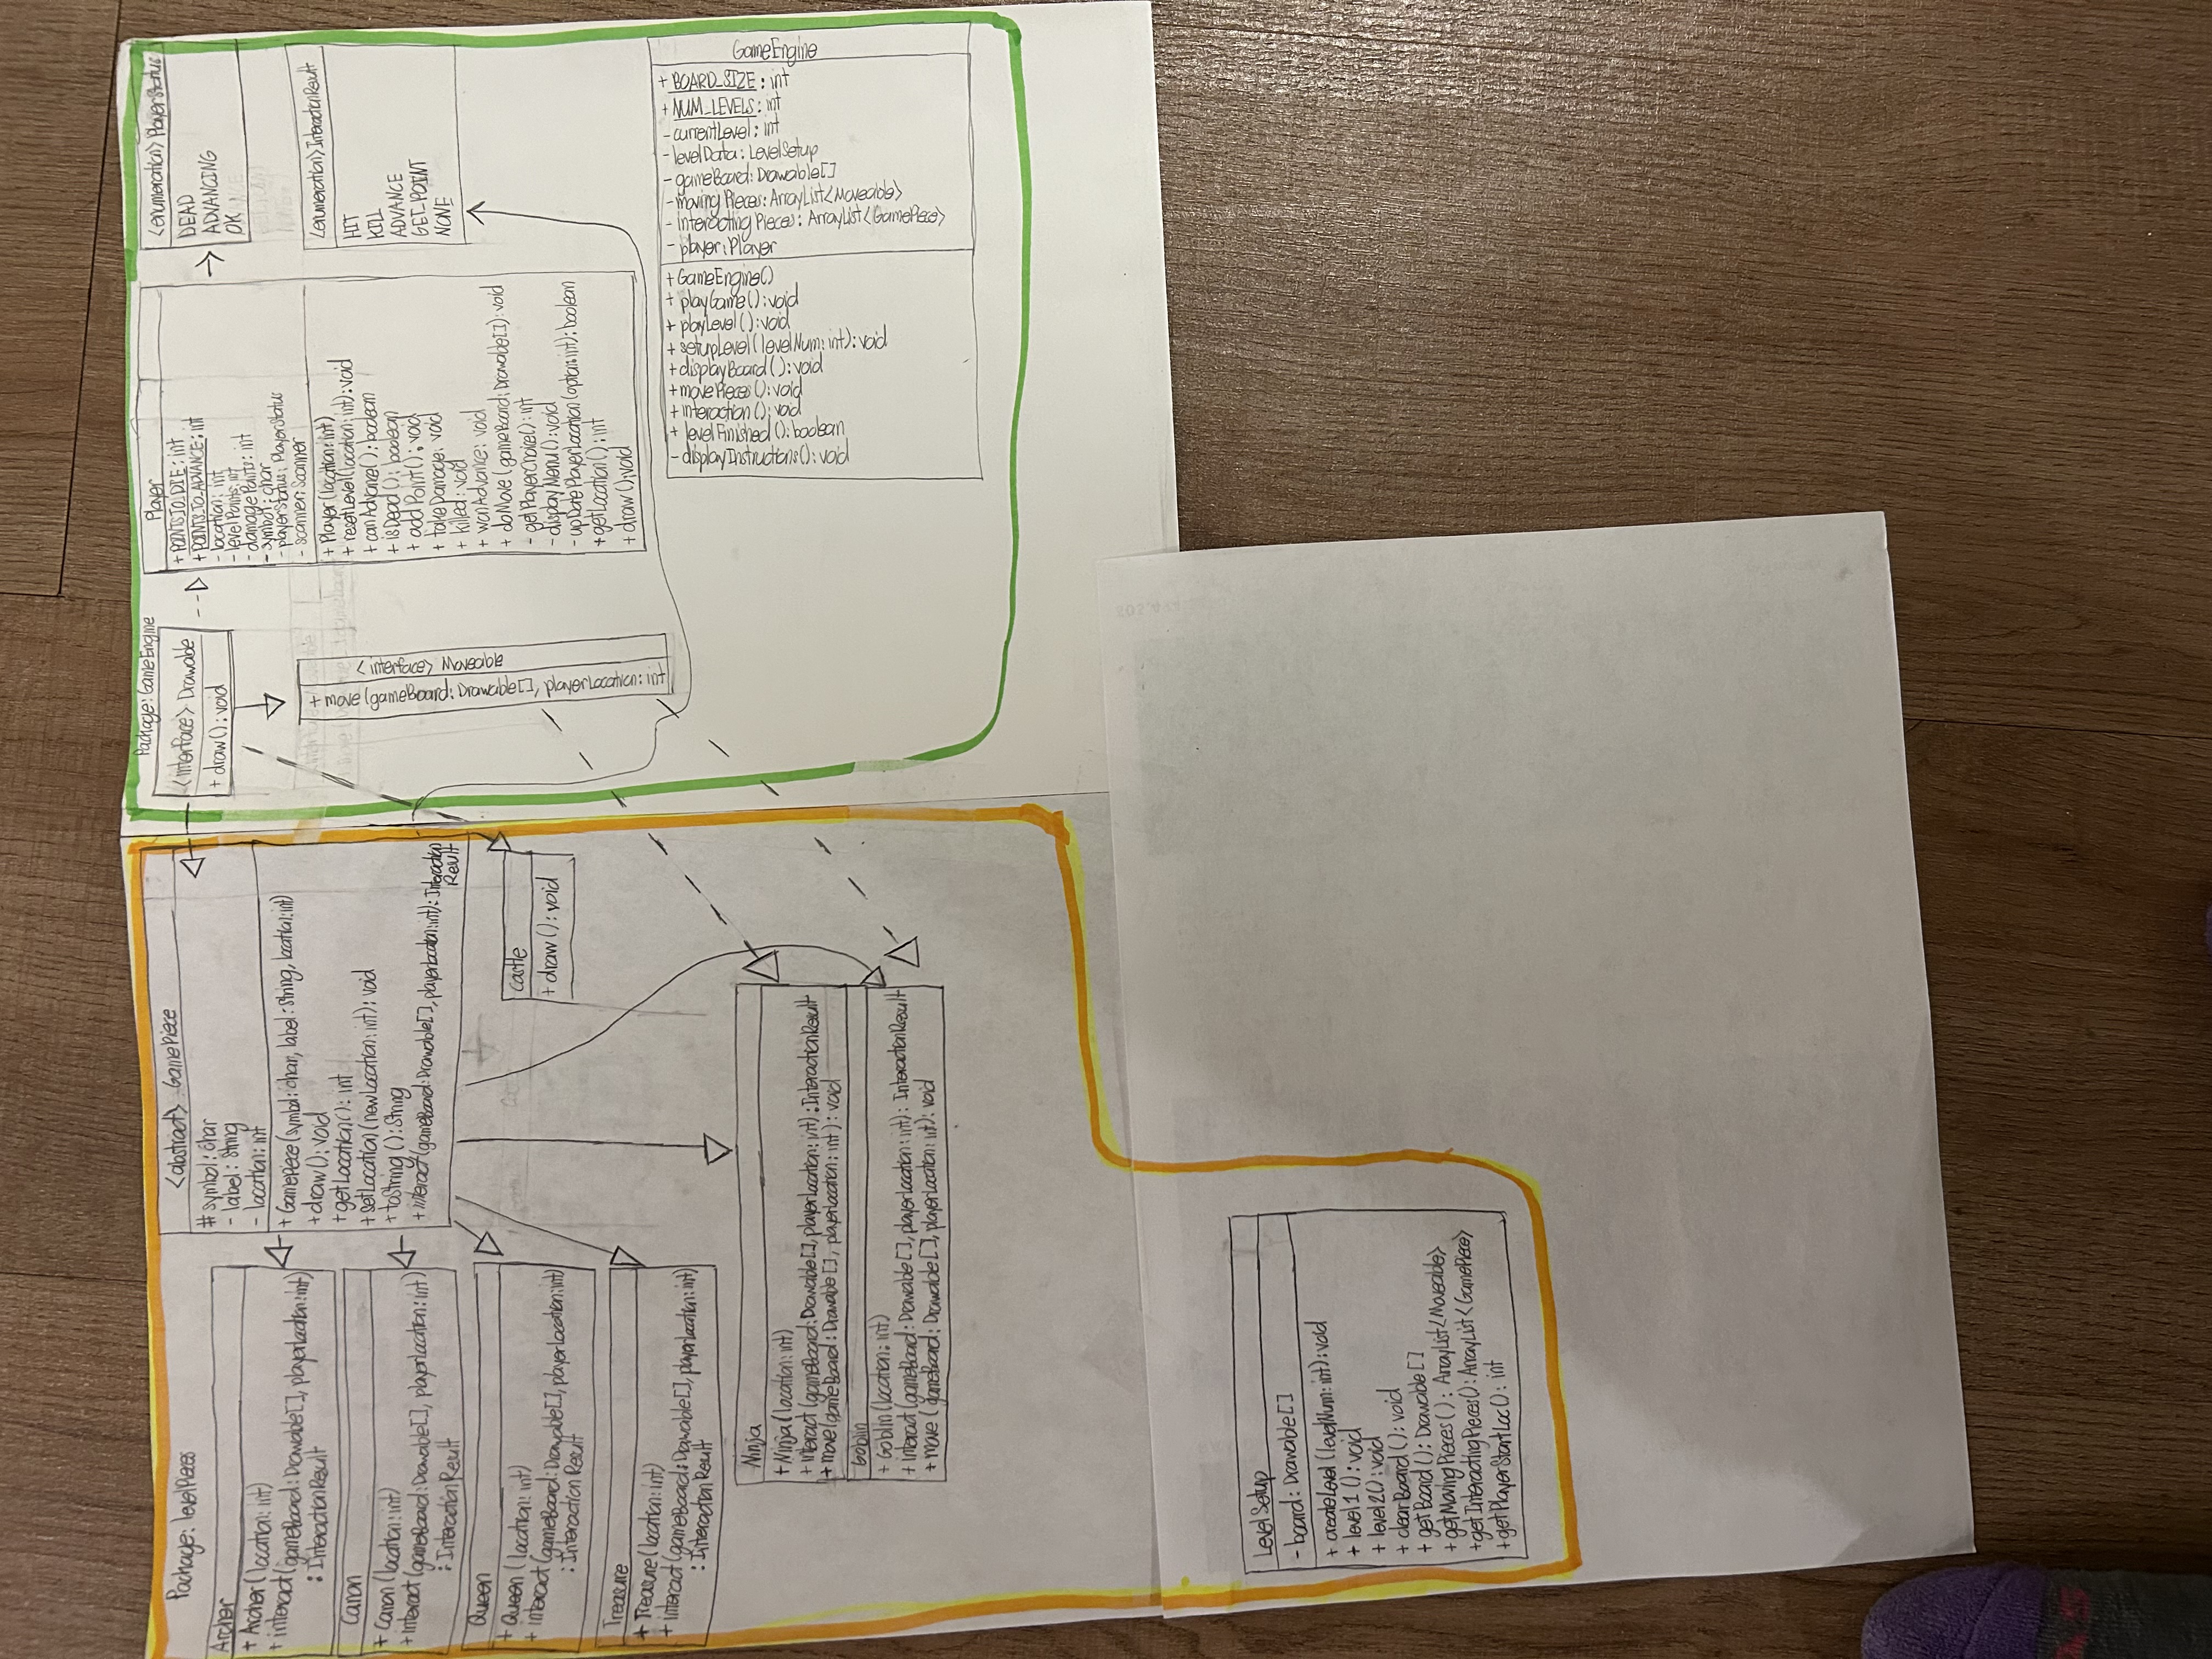 Package: levelPieces
Archer
+ Archer (location: int)
+ interact (gameBoard: Drawable[], playerLocation: int)
: InteractionResult
Canon
+ Canon (location: int)
+ interact (gameBoard: Drawable[], playerLocation: int)
: InteractionResult
Queen
+ Queen (location: int)
+ interact (gameBoard: Drawable[], playerLocation: int)
: InteractionResult
Treasure
+ Treasure (location: int)
+ interact (gameBoard: Drawable[], playerLocation: int)
: InteractionResult
<abstract> GamePiece
# symbol: char
- label: String
- location: int
+ GamePiece (symbol: char, label: String, location: int)
+ draw(): void
+ getLocation(): int
+ setLocation (newLocation: int): void
+ toString (): String
+ interact (gameBoard: Drawable[], playerLocation: int): Interaction
Result
Castle
+ draw(): void
Ninja
+ Ninja (location: int)
+ interact (gameBoard: Drawable[], playerLocation: int): InteractionResult
+ move (gameBoard: Drawable[], playerLocation: int): void
Goblin
+ Goblin (location: int)
+ interact (gameBoard: Drawable[], playerLocation: int): InteractionResult
+ move (gameBoard: Drawable[], playerLocation: int): void
Level Setup
- board: Drawable[]
+ createLevel (levelNum: int): void
+ level1 (): void
+ level2(): void
+ clearBoard (): void
+ getBoard (): Drawable[]
+ getMovingPieces (): ArrayList<Moveable>
+ getInteractingPieces(): ArrayList<GamePiece>
+ getPlayerStartLoc(): int
Package: GameEngine
<interface> Drawable
+ draw(): void
<interface> Moveable
+ move (gameBoard: Drawable[], playerLocation: int
Player
+ POINTS_TO_DIE: int
+ POINTS_TO_ADVANCE: int
- location: int
- levelPoints: int
- damagePoints: int
- symbol: char
- playerStatus: PlayerStatus
- scanner: Scanner
+ Player (location: int)
+ resetLevel (location: int): void
+ canAdvance (): boolean
+ isDead (): boolean
+ addPoint(): void
+ takeDamage: void
+ killed: void
+ wonAdvance: void
+ doMove (gameBoard: Drawable[]): void
- getPlayerChoice(): int
- displayMenu(): void
- upDatePlayerLocation (option: int): boolean
+ getLocation(): int
+ draw(): void
<enumeration> PlayerStatus
DEAD
ADVANCING
OK
<enumeration> InteractionResult
HIT
KILL
ADVANCE
GET_POINT
NONE
GameEngine
+ BOARD_SIZE: int
+ NUM_LEVELS: int
- currentLevel: int
- levelData: LevelSetup
- gameBoard: Drawable[]
- movingPieces: ArrayList<Moveable>
- interacting Pieces: ArrayList<GamePiece>
- player: Player
+ GameEngine()
+ playGame(): void
+ playLevel(): void
+ setupLevel (levelNum: int): void
+ displayBoard (): void
+ movePieces(): void
+ interaction (): void
+ levelFinished(): boolean
- displayInstructions(): void